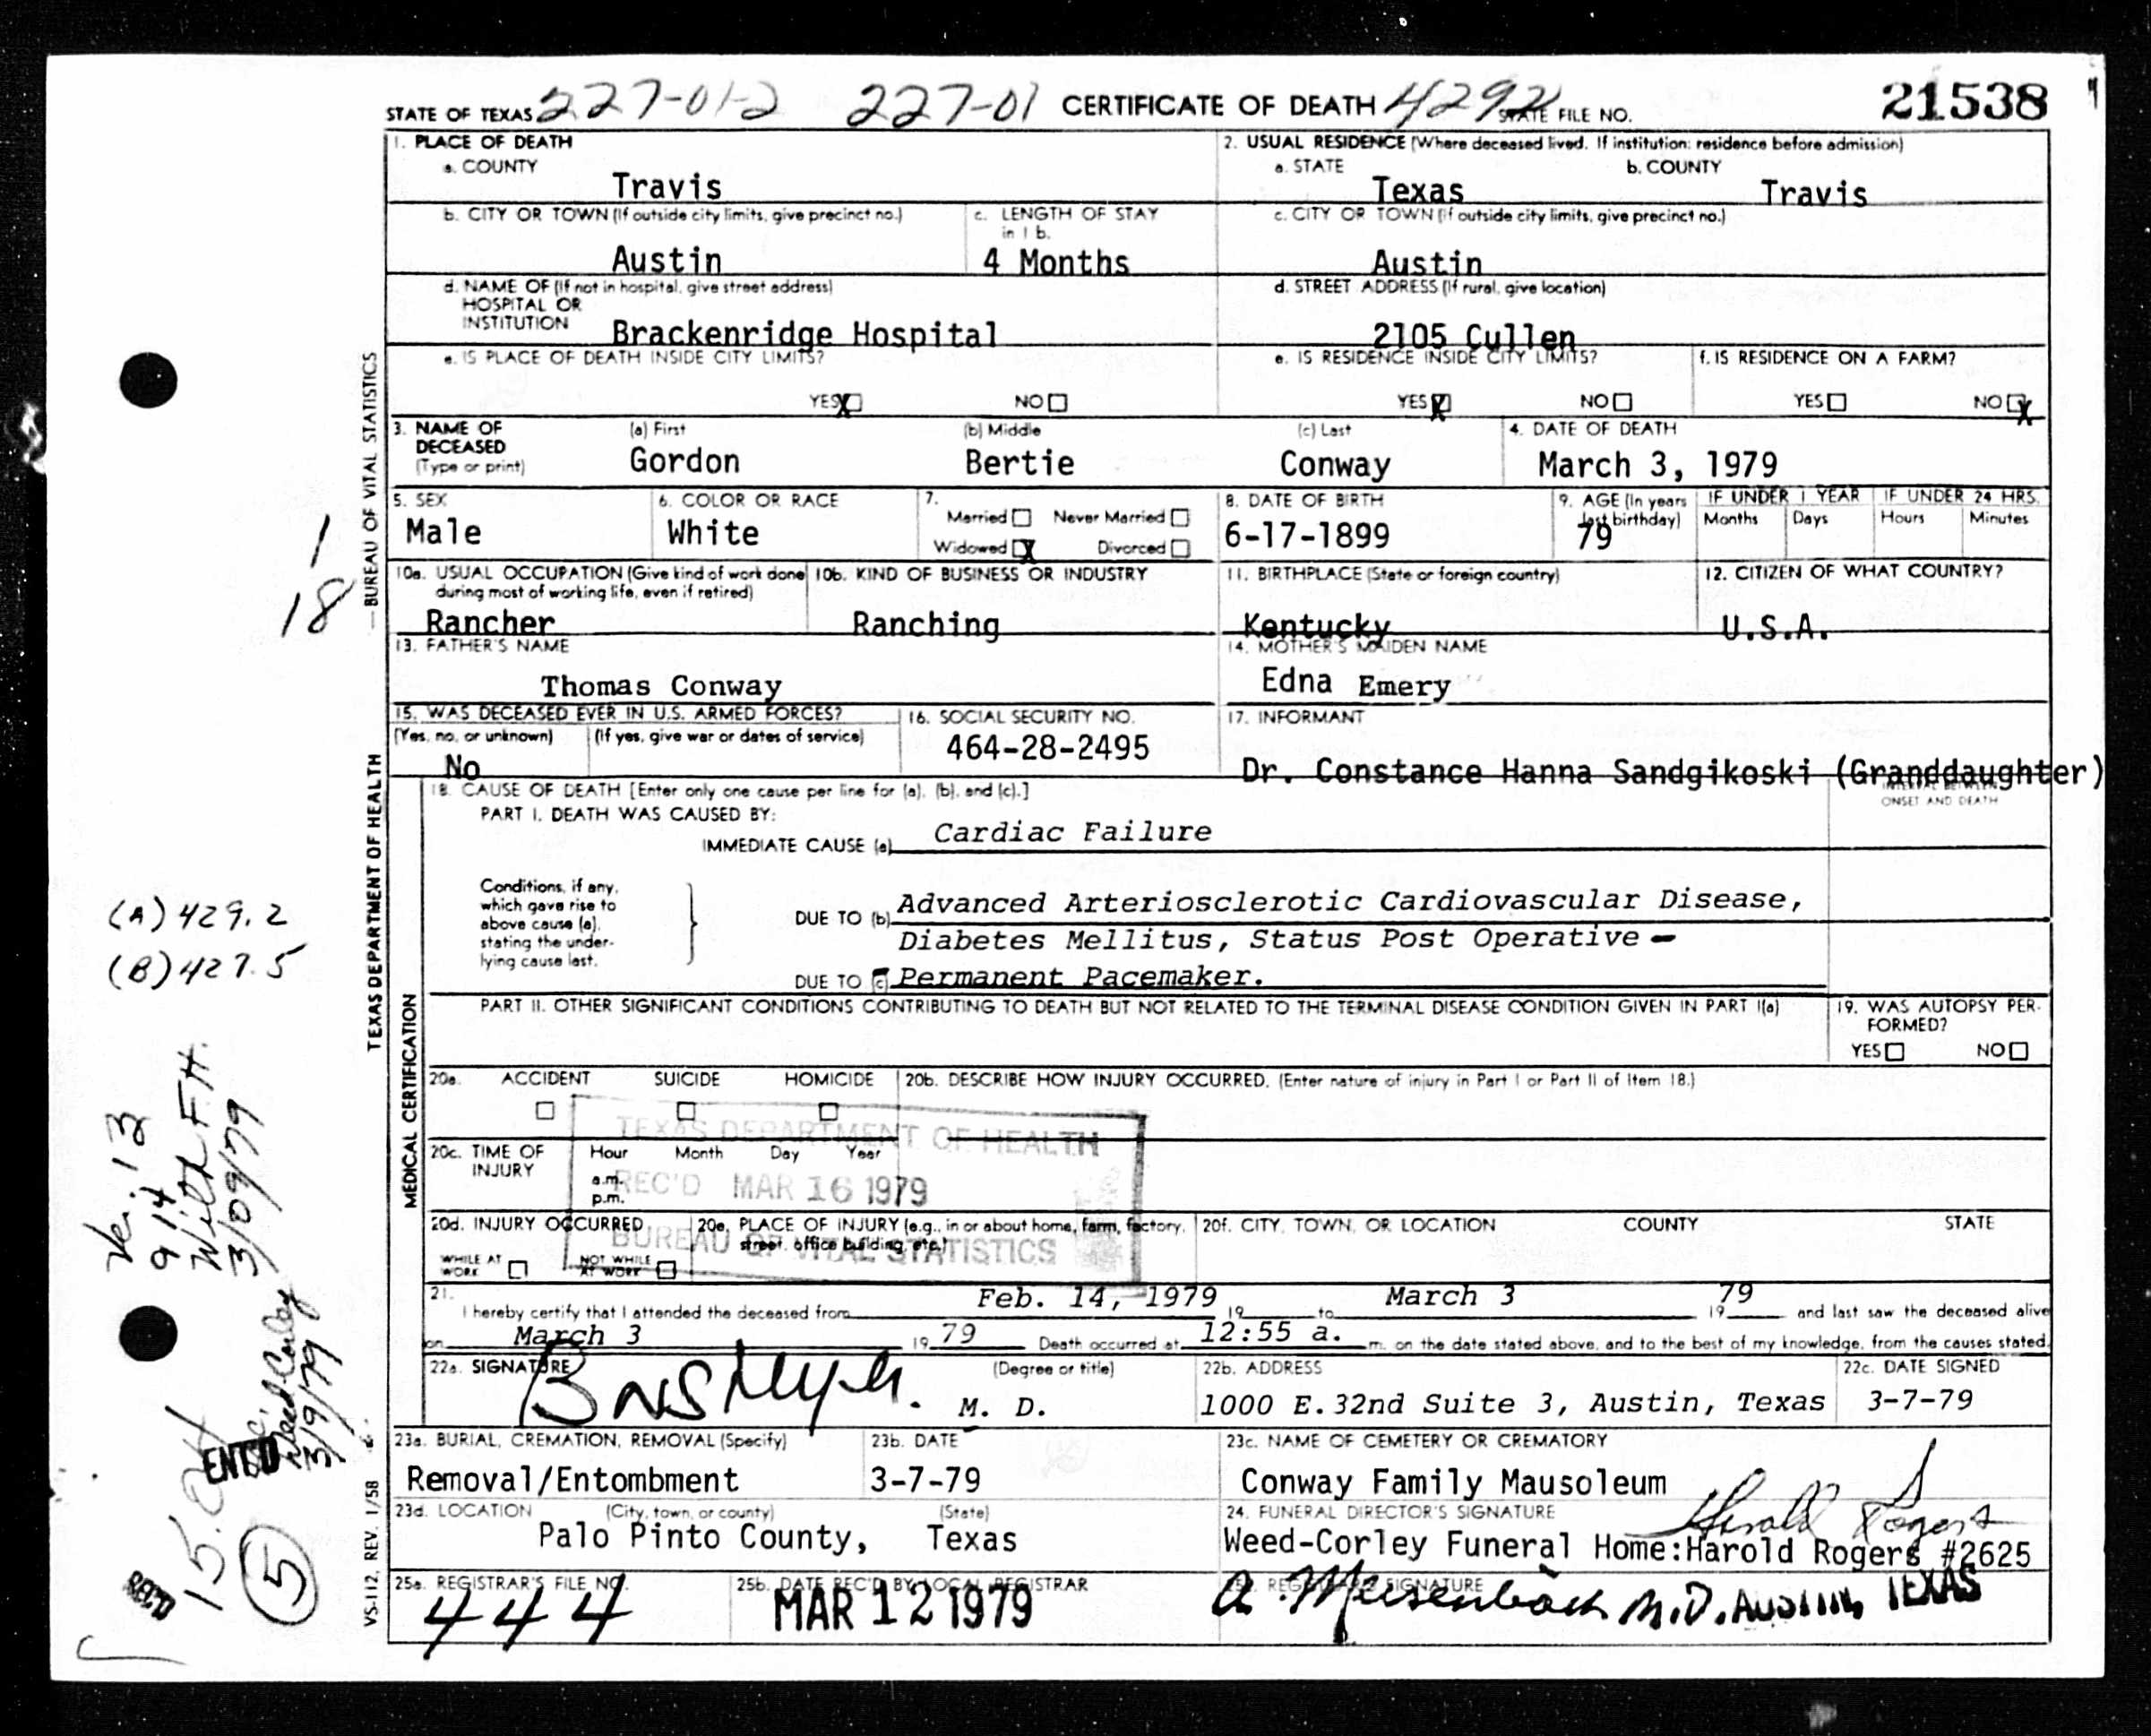 STATE OF TEXAS 227-01-2 227-01 CERTIFICATE OF DEATH 4292 STATE FILE NO. 21538
1. PLACE OF DEATH
a. COUNTY
Travis
2. USUAL RESIDENCE (Where deceased lived. If institution: residence before admission)
a. STATE b. COUNTY
Texas Travis
b. CITY OR TOWN (If outside city limits, give precinct no.) c. LENGTH OF STAY in 1 b.
Austin 4 Months
c. CITY OR TOWN (If outside city limits, give precinct no.)
Austin
d. NAME OF (If not in hospital, give street address)
HOSPITAL OR
INSTITUTION Brackenridge Hospital
d. STREET ADDRESS (If rural, give location)
2105 Cullen
e. IS PLACE OF DEATH INSIDE CITY LIMITS?
YES X NO
e. IS RESIDENCE INSIDE CITY LIMITS? f. IS RESIDENCE ON A FARM?
YES X NO YES NO X
3. NAME OF DECEASED (Type or print) (a) First (b) Middle (c) Last 4. DATE OF DEATH
Gordon Bertie Conway March 3, 1979
5. SEX 6. COLOR OR RACE 7. Married Never Married Widowed X Divorced
Male White
8. DATE OF BIRTH 9. AGE (In years last birthday) IF UNDER 1 YEAR IF UNDER 24 HRS.
Months Days Hours Minutes
6-17-1899 79
10a. USUAL OCCUPATION (Give kind of work done during most of working life, even if retired) 10b. KIND OF BUSINESS OR INDUSTRY
Rancher Ranching
11. BIRTHPLACE (State or foreign country) 12. CITIZEN OF WHAT COUNTRY?
Kentucky U.S.A.
13. FATHER'S NAME
Thomas Conway
14. MOTHER'S MAIDEN NAME
Edna Emery
15. WAS DECEASED EVER IN U.S. ARMED FORCES?
(Yes, no, or unknown) (If yes, give war or dates of service)
No
16. SOCIAL SECURITY NO.
464-28-2495
17. INFORMANT
Dr. Constance Hanna Sandgikoski (Granddaughter)
18. CAUSE OF DEATH [Enter only one cause per line for (a), (b), and (c).]
INTERVAL BETWEEN
ONSET AND DEATH
PART I. DEATH WAS CAUSED BY:
IMMEDIATE CAUSE (a) Cardiac Failure
Conditions, if any,
which gave rise to
above cause (a),
stating the under-
lying cause last.
DUE TO (b) Advanced Arteriosclerotic Cardiovascular Disease,
Diabetes Mellitus, Status Post Operative -
DUE TO (c) Permanent Pacemaker.
PART II. OTHER SIGNIFICANT CONDITIONS CONTRIBUTING TO DEATH BUT NOT RELATED TO THE TERMINAL DISEASE CONDITION GIVEN IN PART I(a)
19. WAS AUTOPSY PER-
FORMED?
YES NO
20a. ACCIDENT SUICIDE HOMICIDE 20b. DESCRIBE HOW INJURY OCCURRED. (Enter nature of injury in Part I or Part II of Item 18.)
TEXAS DEPARTMENT OF HEALTH
REC'D MAR 16 1979
BUREAU OF VITAL STATISTICS
20c. TIME OF INJURY Hour Month Day Year
a.m.
p.m.
20d. INJURY OCCURRED
WHILE AT WORK NOT WHILE AT WORK
20e. PLACE OF INJURY (e.g., in or about home, farm, factory,
street, office building, etc.)
20f. CITY, TOWN, OR LOCATION COUNTY STATE
21. I hereby certify that I attended the deceased from Feb. 14, 1979 19 to March 3 19 79 and last saw the deceased alive
on March 3 19 79 Death occurred at 12:55 a. m. on the date stated above, and to the best of my knowledge, from the causes stated.
22a. SIGNATURE (Degree or title)
M. D.
22b. ADDRESS
1000 E.32nd Suite 3, Austin, Texas
22c. DATE SIGNED
3-7-79
23a. BURIAL, CREMATION, REMOVAL (Specify) 23b. DATE
Removal/Entombment 3-7-79
23c. NAME OF CEMETERY OR CREMATORY
Conway Family Mausoleum
23d. LOCATION (City, town, or county) (State)
Palo Pinto County, Texas
24. FUNERAL DIRECTOR'S SIGNATURE
Harold Rogers
Weed-Corley Funeral Home:Harold Rogers #2625
25a. REGISTRAR'S FILE NO. 25b. DATE REC'D BY LOCAL REGISTRAR
444 MAR 12 1979
REGISTRAR'S SIGNATURE
M.D. AUSTIN, TEXAS
TEXAS DEPARTMENT OF HEALTH — BUREAU OF VITAL STATISTICS
MEDICAL CERTIFICATION
VS-112, REV. 1/58
1
18
(A) 429.2
(B) 427.5
Ve: 13
9 14
With F.H.
3/09/79
Weed Corley
3/19/79
ENT'D
REC'D
5